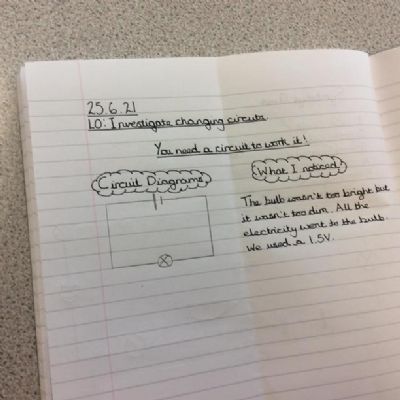 25.6.21
LO: Investigate changing circuits.
You need a circuit to work it!
Circuit Diagrams
What I noticed
The bulb wasn't too bright but
it wasn't too dim. All the
electricity went to the bulb.
We used a 1.5V.